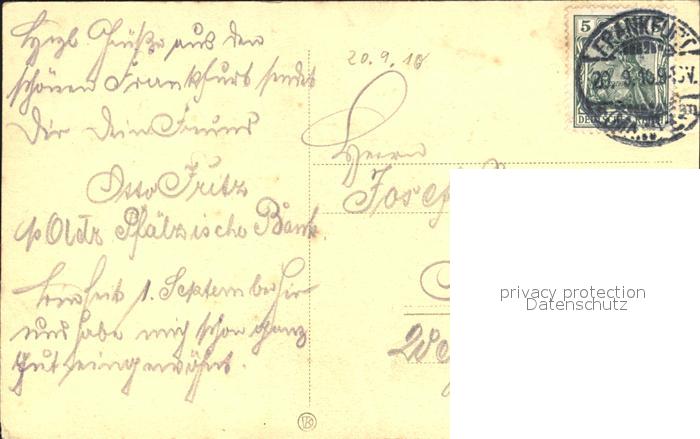 Herzl Grüße aus dem
schönen Frankfurt sendet
Dir Dein Freund
Otto Fritz
Pfälzische Bank.
1. September hier
und habe mich schon ganz
gut eingewöhnt.
20.9.10
5
FRANKFURT
20. 9. 10. 9-10V.
DEUTSCHES REICH
Herrn
Josef
privacy protection
Datenschutz